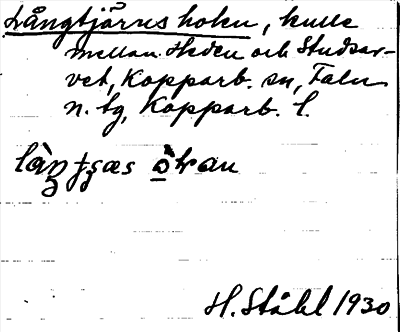 Långtjärns holen, kulle
mellan Heden och Studsar-
vet, Kopparb. sn, Falu
n. tg, Kopparb. l.
H. Ståhl 1930